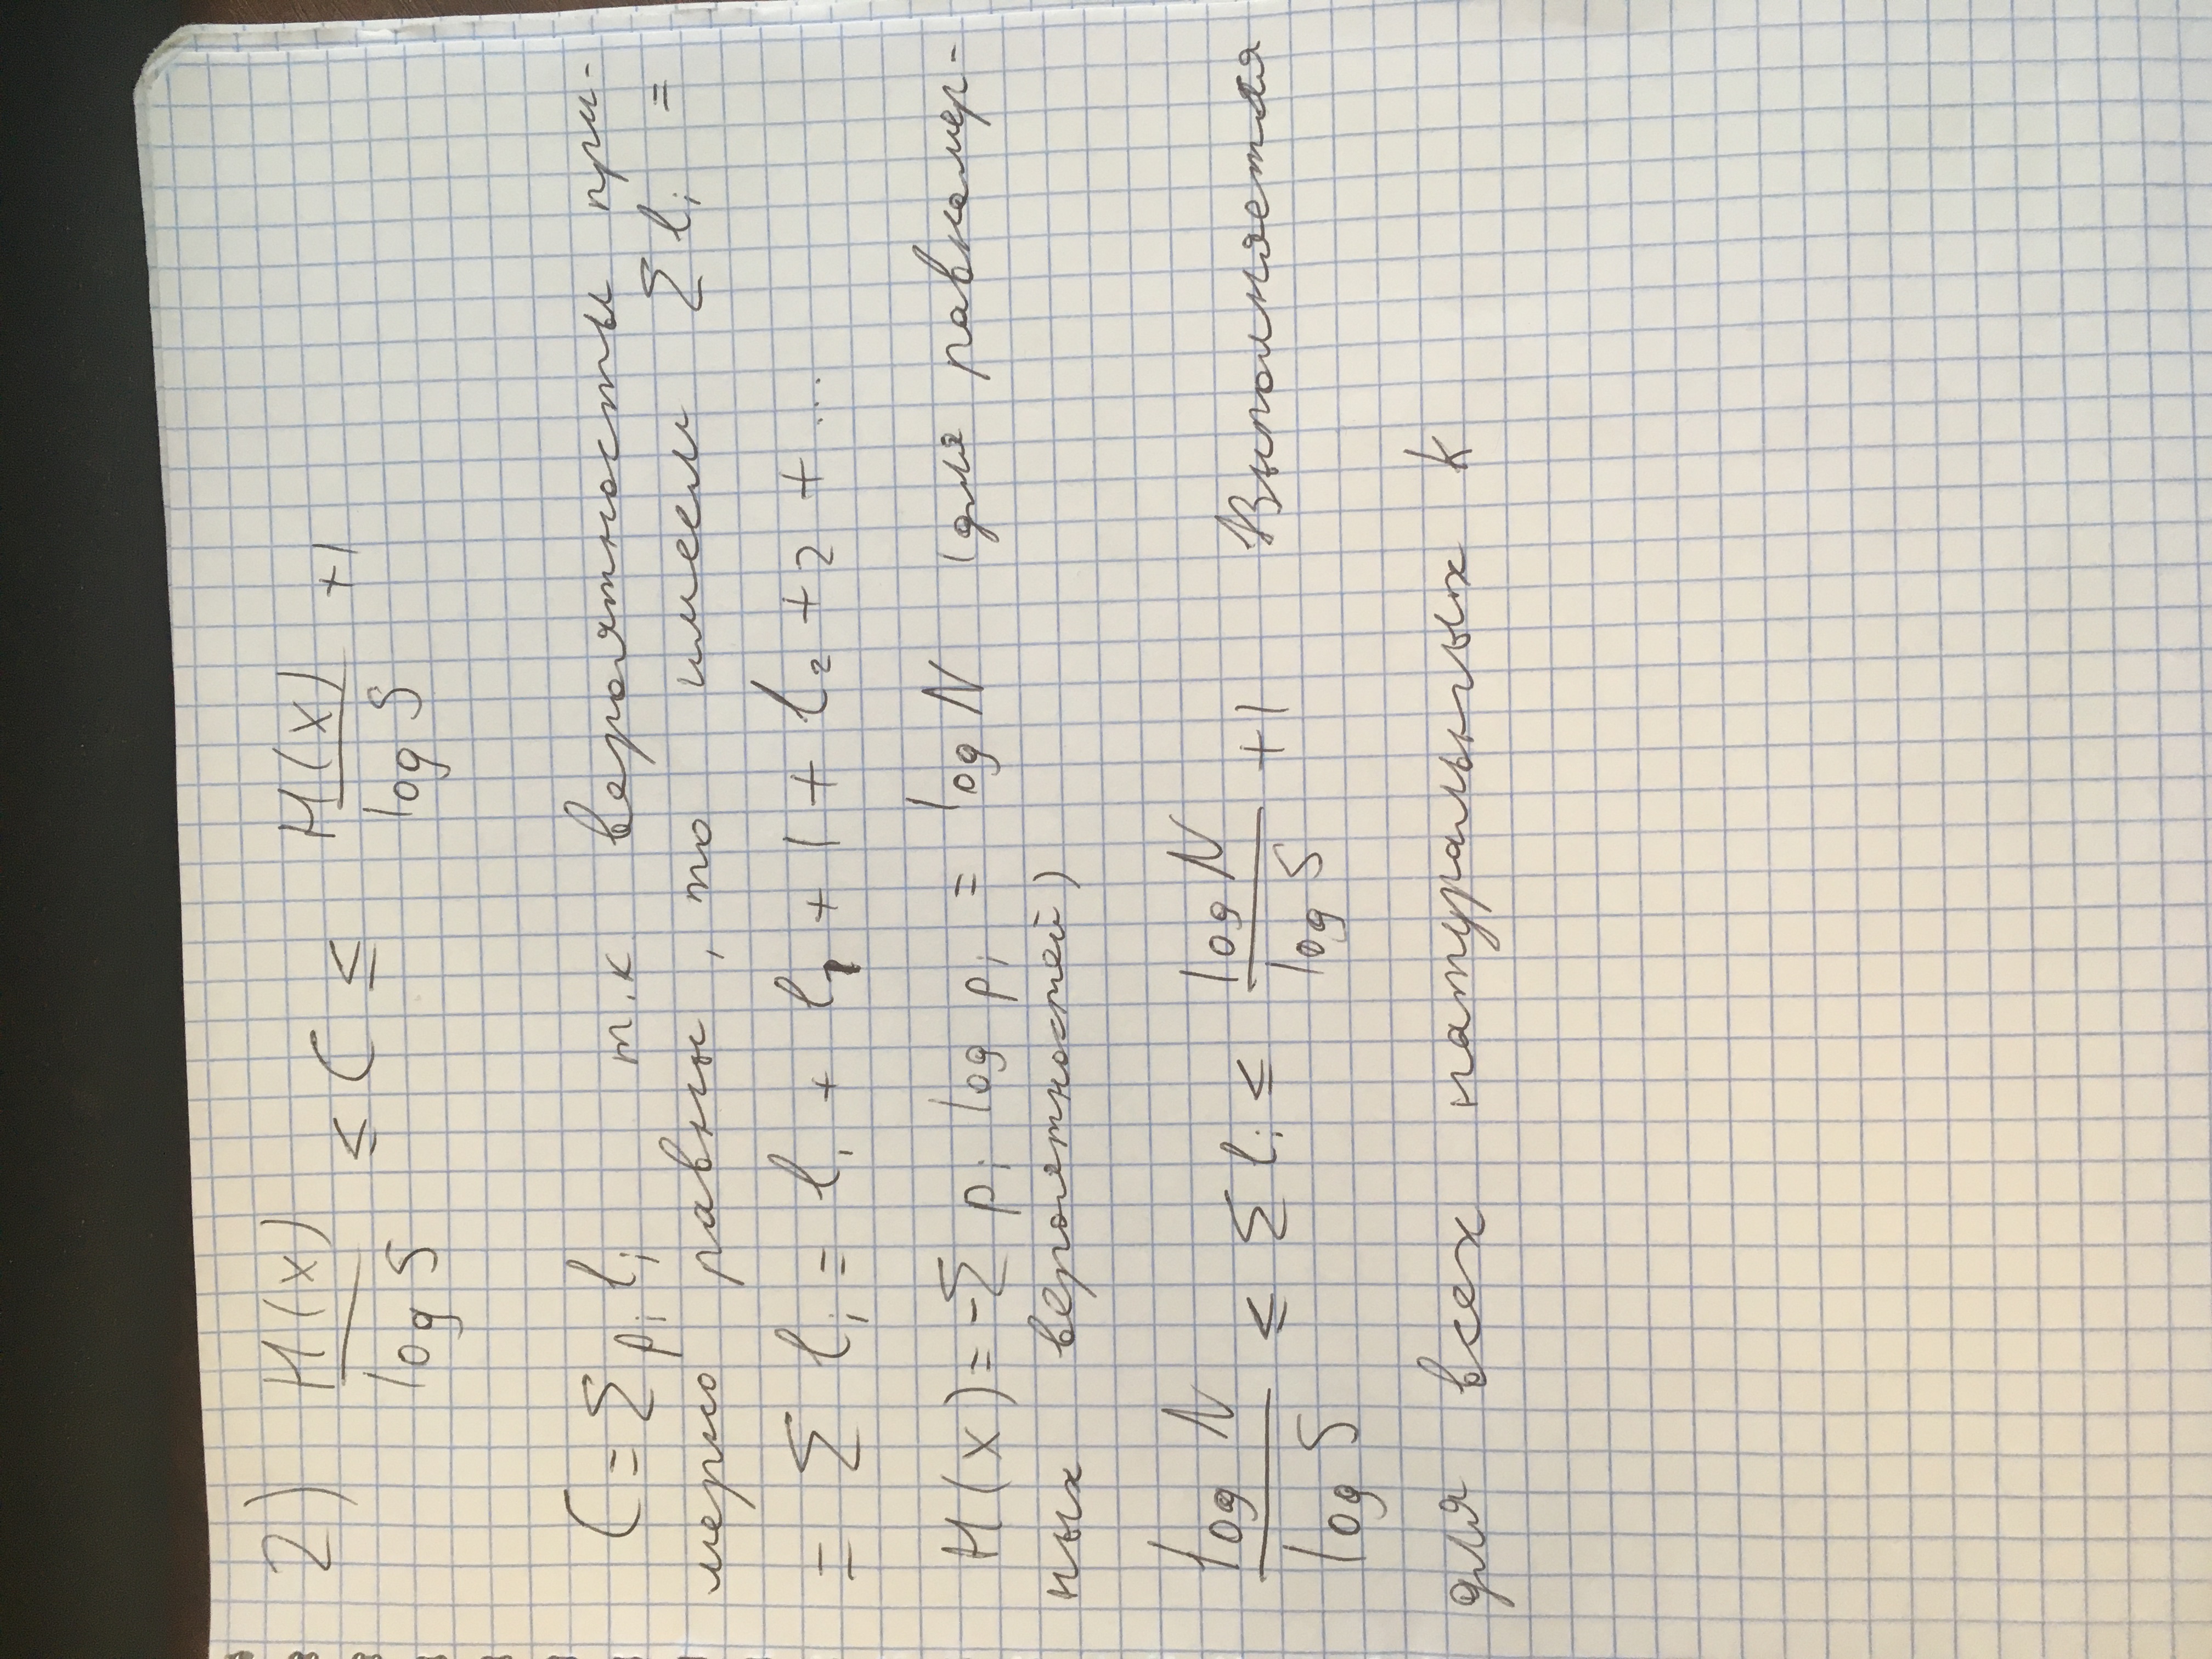 2) H(x)/log S ≤ C ≤ H(x)/log S +1
C = Σ pᵢ lᵢ т.к. вероятности при-
мерно равны, то имеем Σ lᵢ =
= Σ lᵢ = l₁ + l₁ + 1 + l₂ + 2 + ...
H(x) = -Σ pᵢ log pᵢ = log N (для равномер-
ных вероятностей)
log N/log S ≤ Σ lᵢ ≤ log N/log S +1 Выполняется
для всех натуральных k